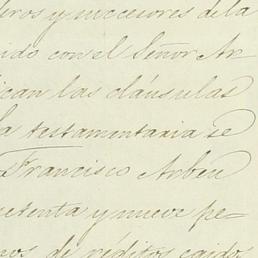 eros y succesores de la
ido con el Señor Ar
ican las cláusulas
la testamentaria se
Francisco Arbeu
etenta y nueve pe-
nos de réditos caidos